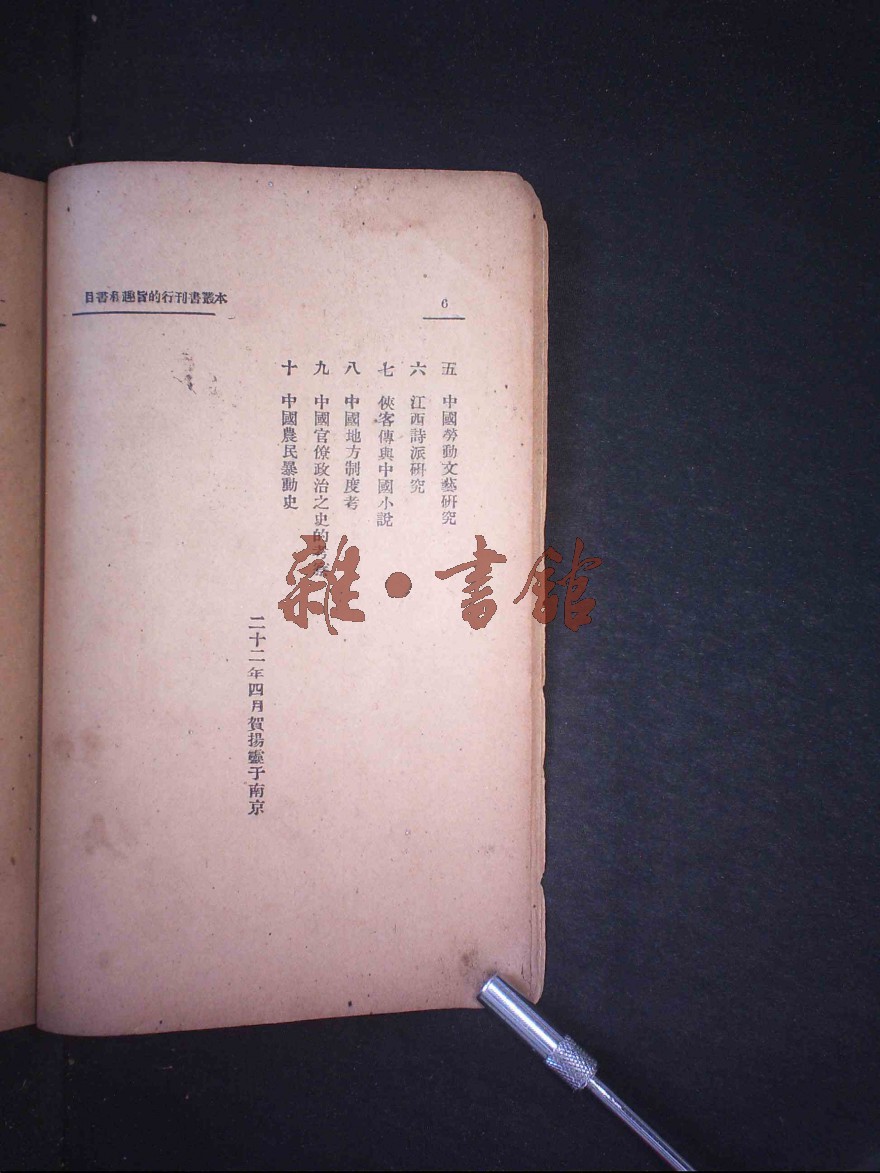 本叢書刊行的旨趣和書目
6
五 中國勞動文藝研究
六 江西詩派研究
七 俠客傳與中國小說
八 中國地方制度考
九 中國官僚政治之史的考
十 中國農民暴動史
二十二年四月賀揚靈于南京
雜·書館